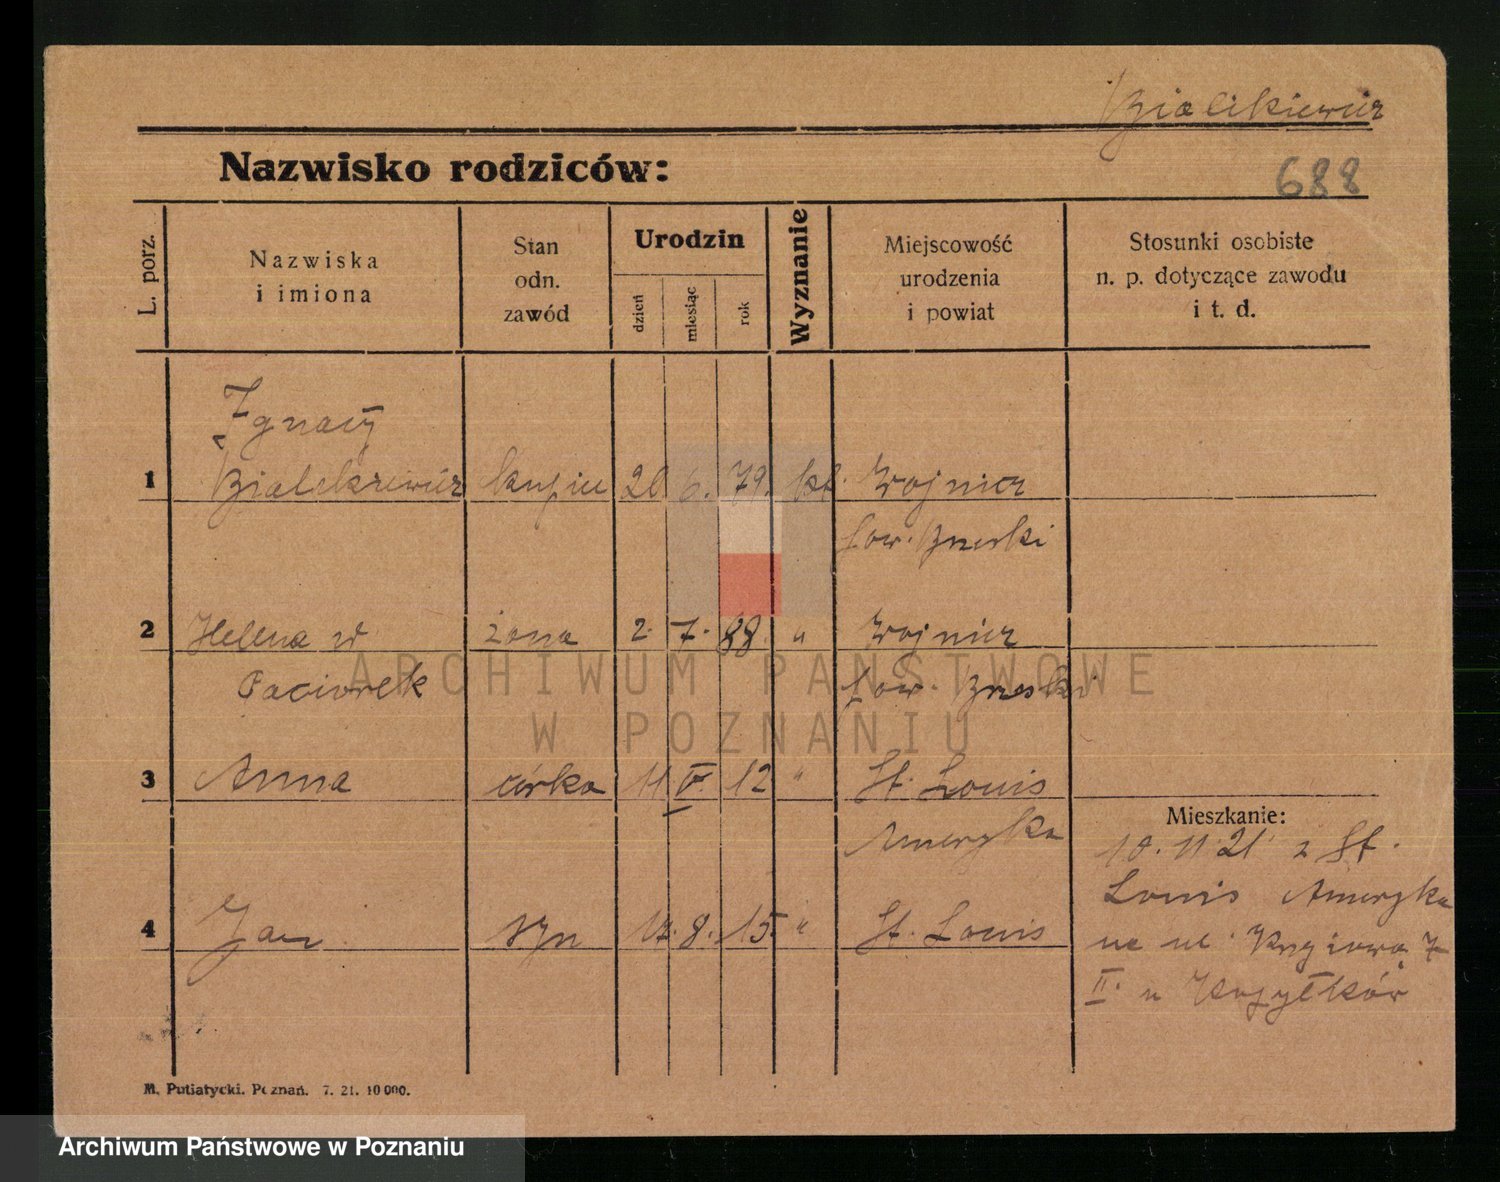 Bialikiewicz
Nazwisko rodziców:
688
L. porz.
Nazwiska
i imiona
Stan
odn.
zawód
Urodzin
dzień
miesiąc
rok
Wyznanie
Miejscowość
urodzenia
i powiat
Stosunki osobiste
n. p. dotyczące zawodu
i t. d.
Ignacy
1 Bialikiewicz kupiec 20 6. 79. kt. Wojnicz
pow. Brzeski
2 Helena w żona 2. 7. 88. " Wojnicz
Paciorek pow. Brzeski
3 Anna córka 11 V. 12 " St. Louis
Mieszkanie:
Ameryka 10. 11 21 z St.
Louis Ameryka
4 Jan syn 17. 8. 15. " St. Louis
na ul. 7
II. u Kopytków
M. Putiatycki. Poznań. 7. 21. 10 000.
ARCHIWUM PAŃSTWOWE
W POZNANIU
Archiwum Państwowe w Poznaniu